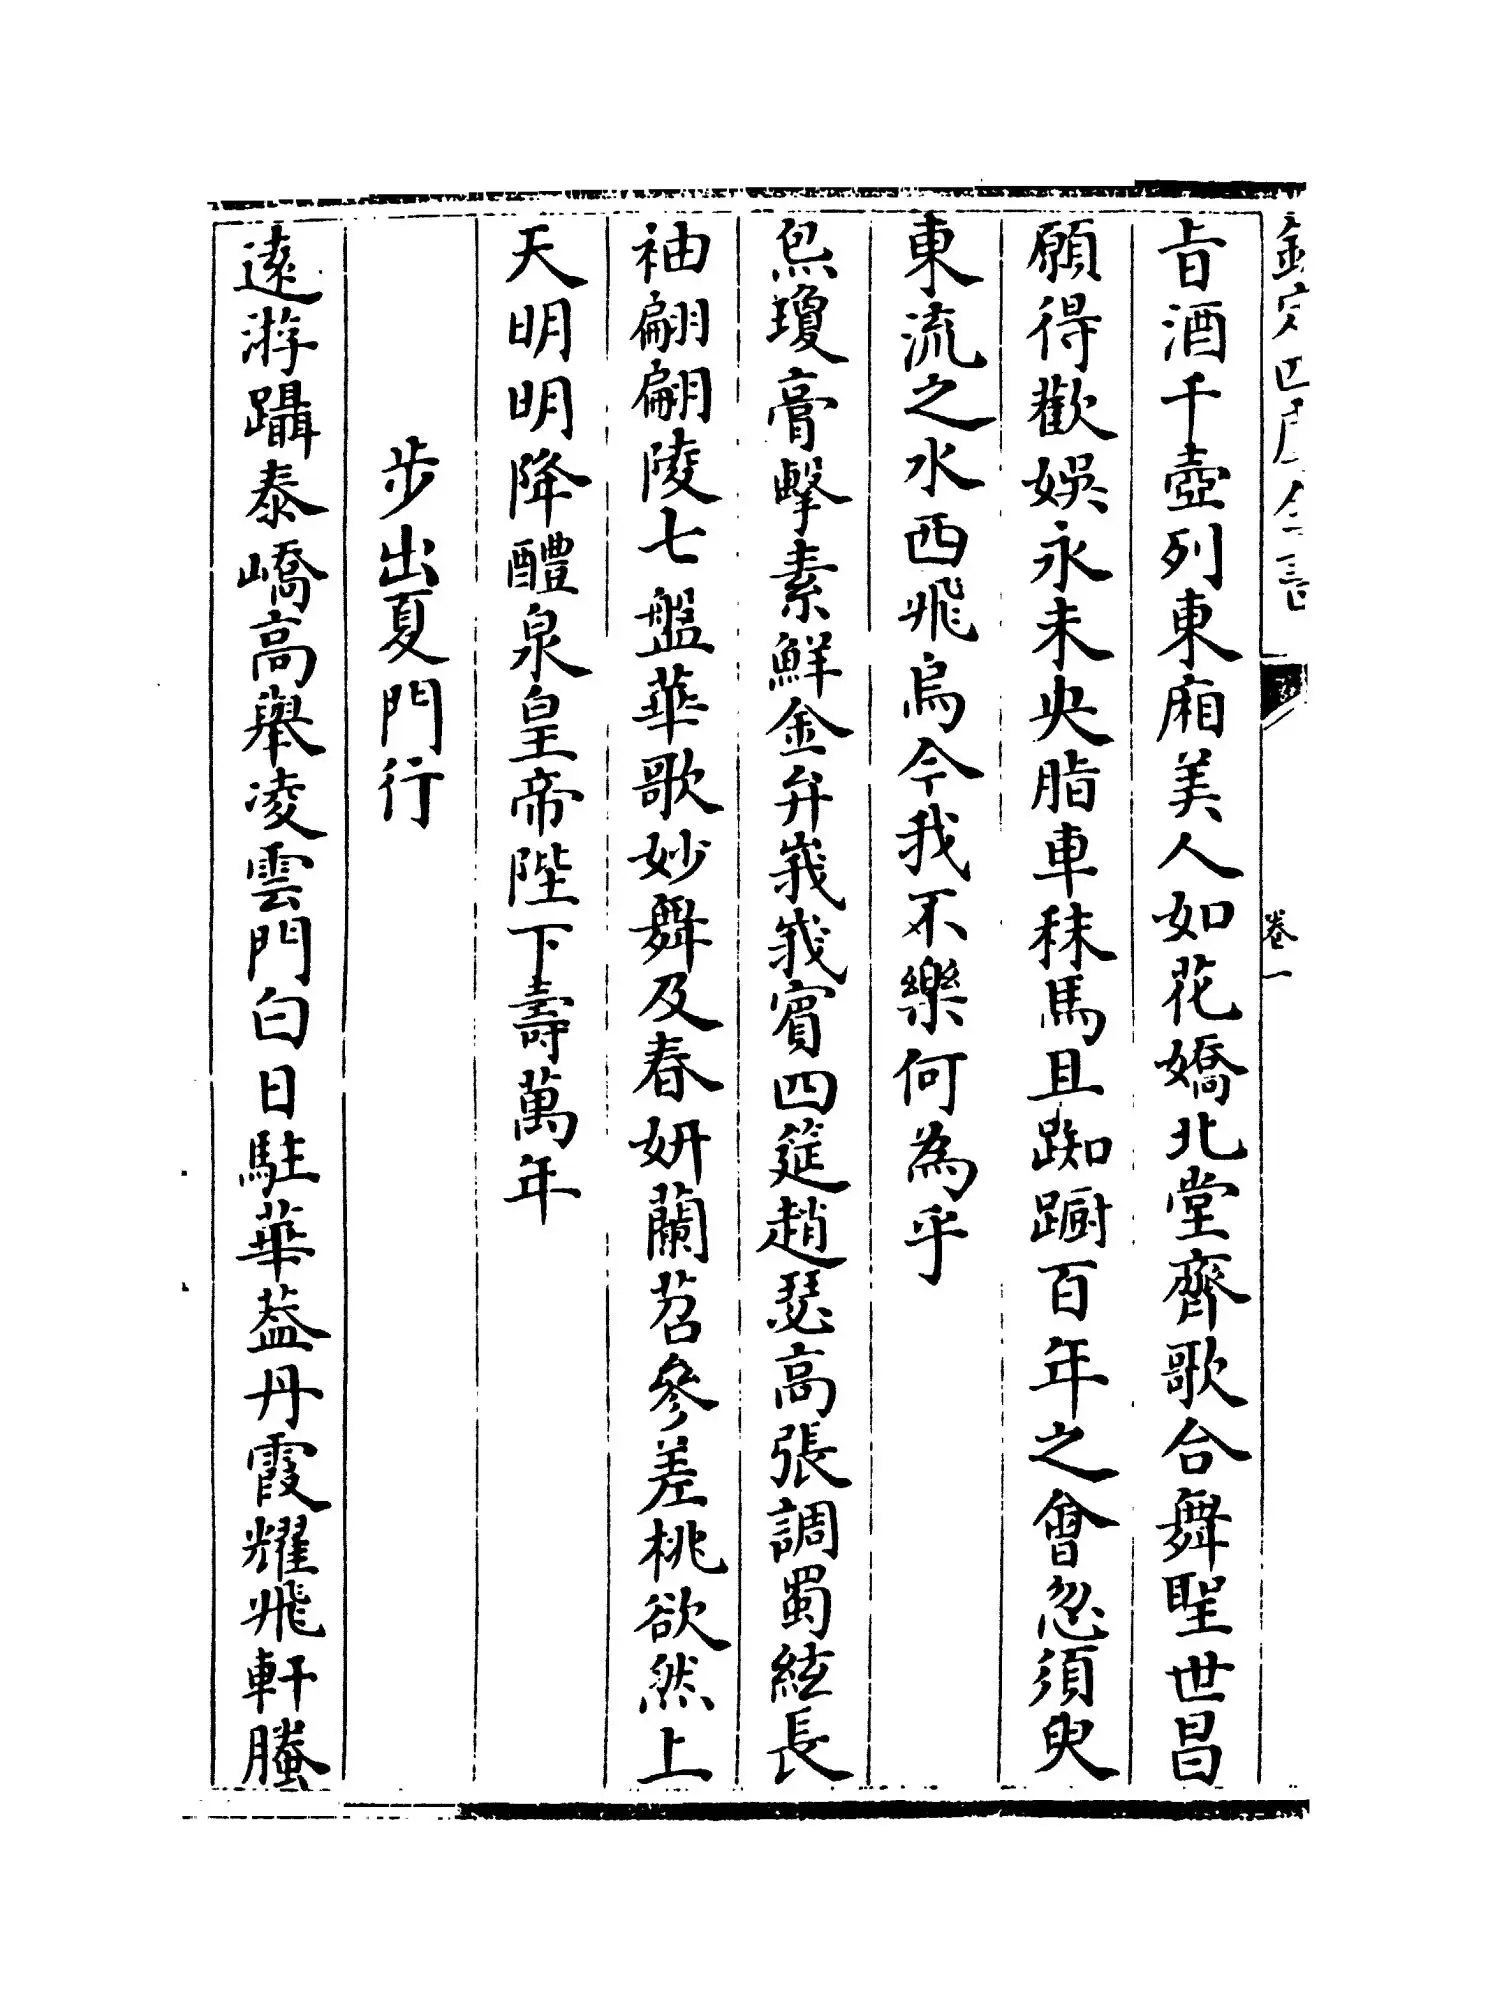 欽定四庫全書
卷一
旨酒千壺列東廂美人如花嬌北堂齊歌合舞聖世昌
願得歡娛永未央脂車秣馬且踟蹰百年之會忽須臾
東流之水西飛烏今我不樂何為乎
炰瓊膏擊素鮮金弁峩峩賓四筵趙瑟高張調蜀絃長
袖翩翩陵七盤華歌妙舞及春妍蘭苕參差桃欲然上
天明明降醴泉皇帝陛下壽萬年
步出夏門行
遠游躡泰嶠高舉凌雲門白日駐華葢丹霞耀飛軒騰